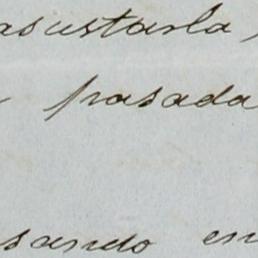 asustarla,
pasada
sando en